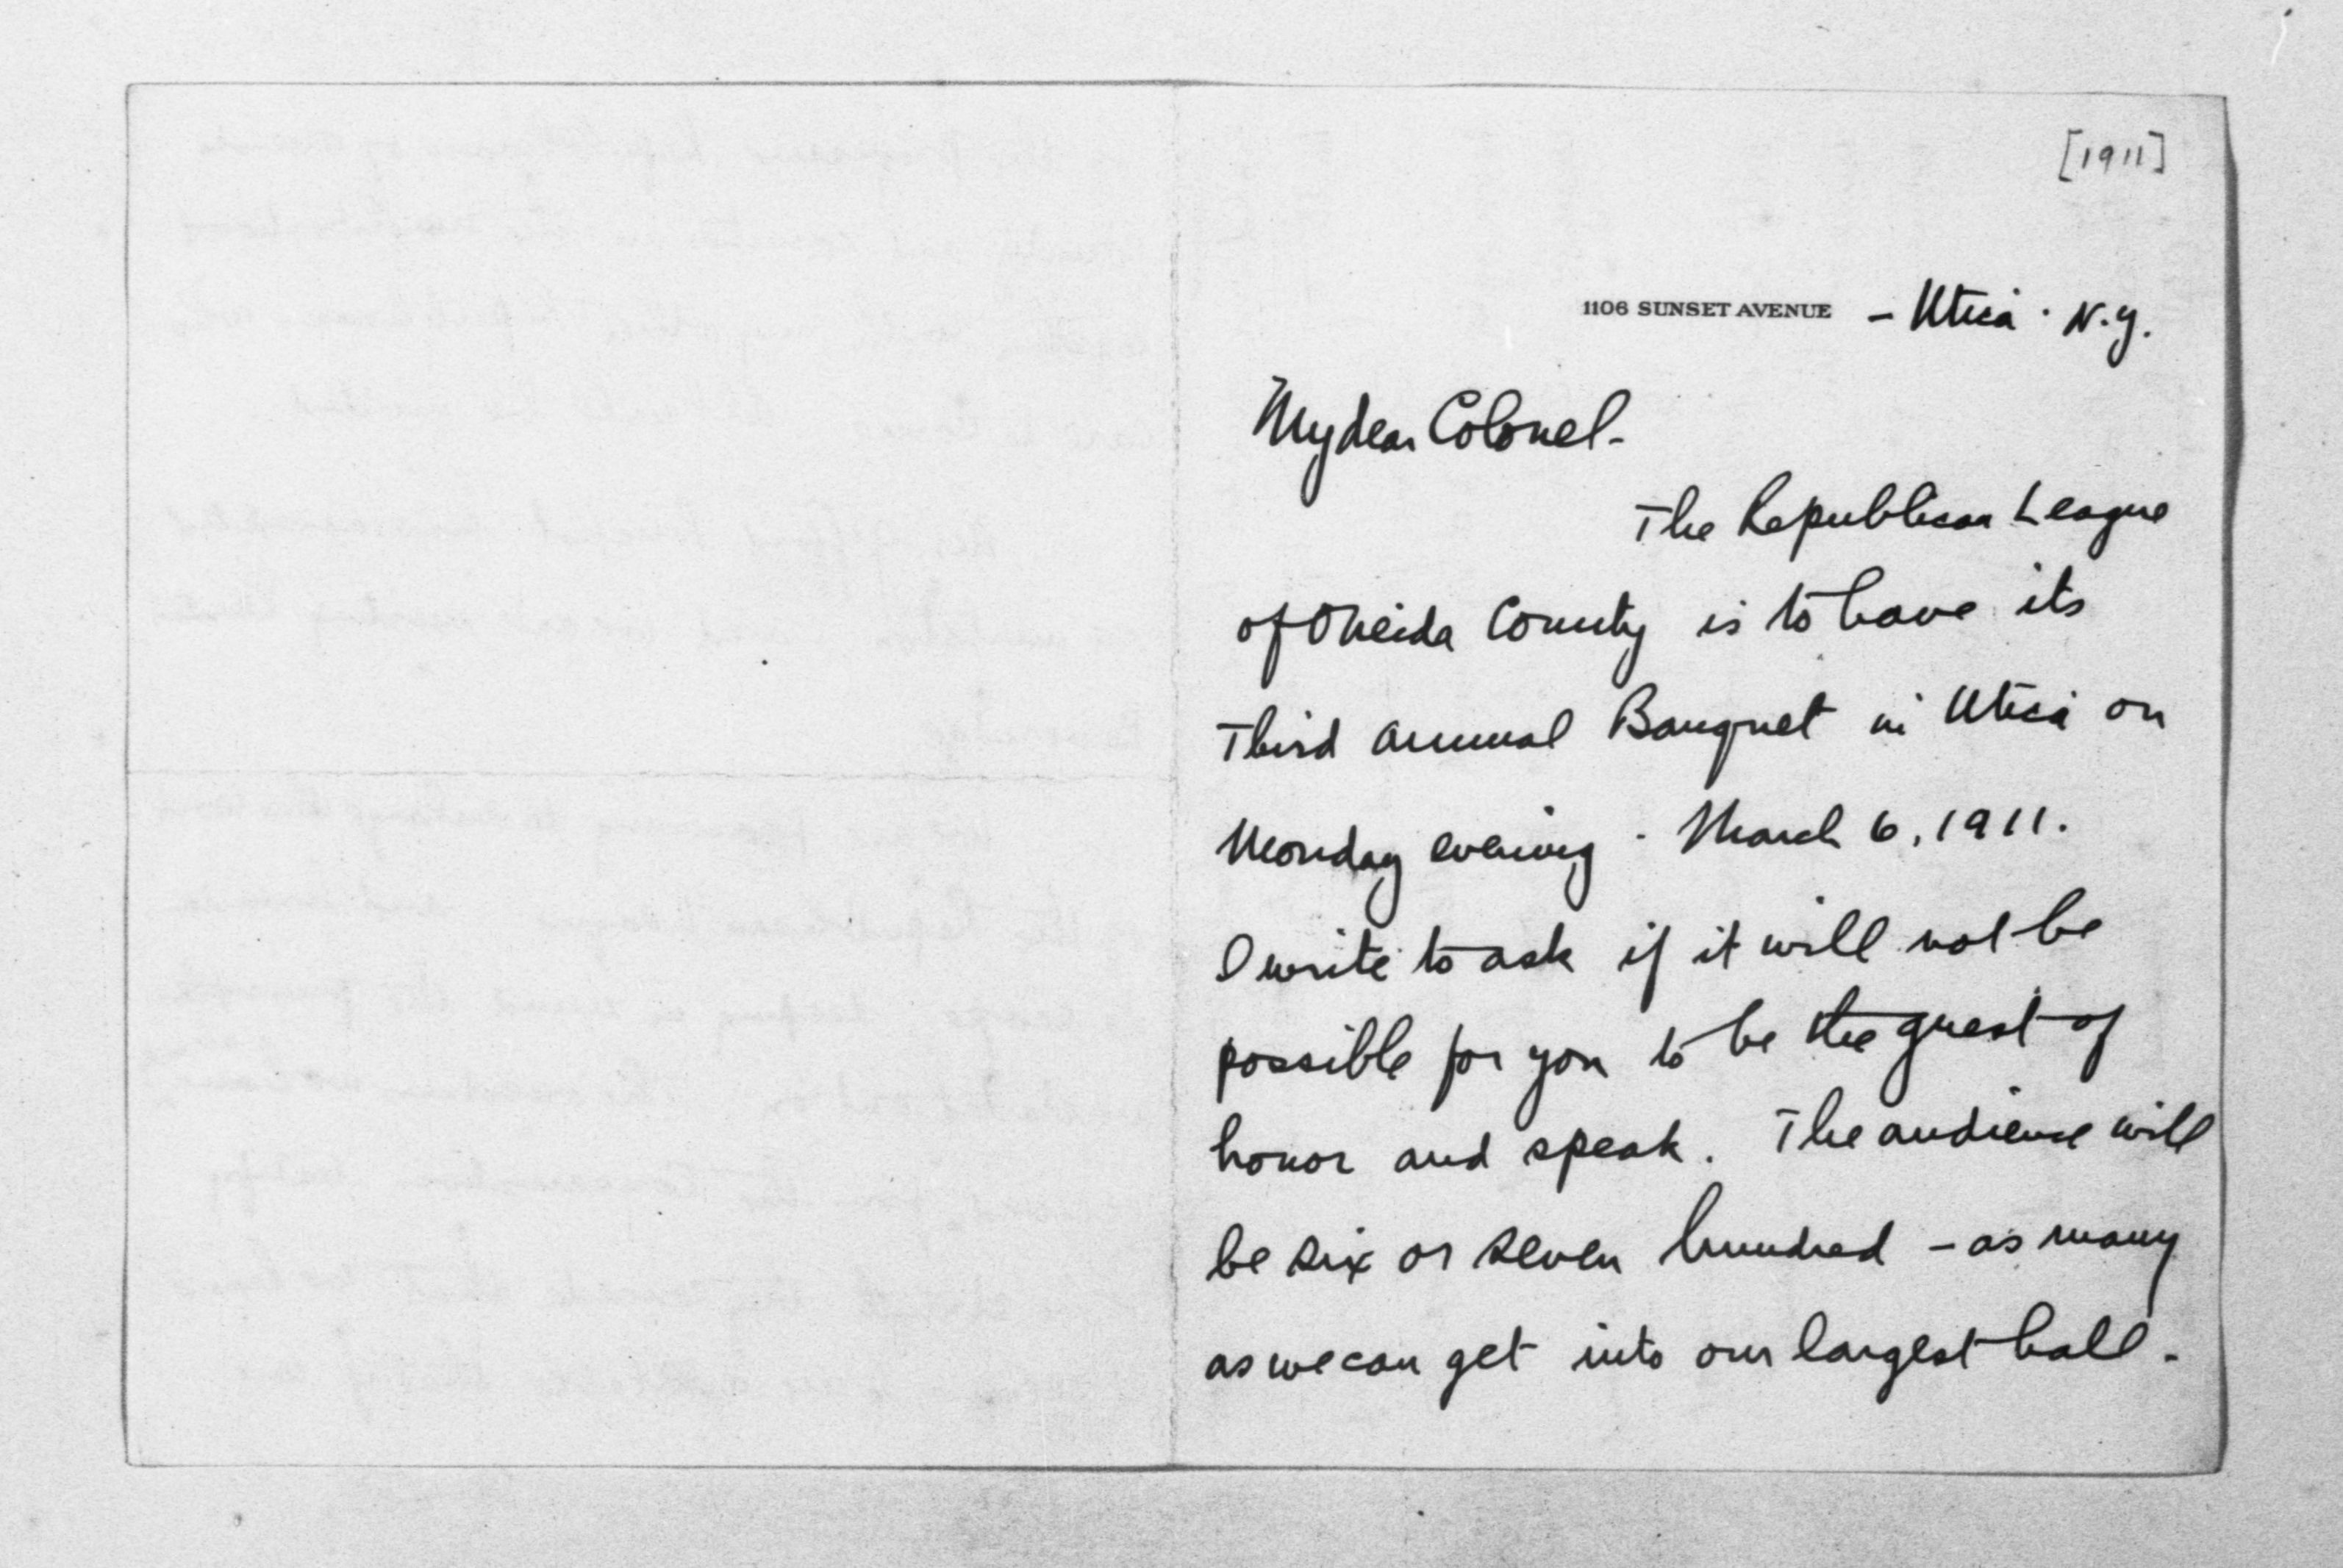 [1911]
1106 SUNSET AVENUE - Utica. N.Y.
My dear Colonel-
The Republican League
of Oneida County is to have its
Third annual Banquet in Utica on
Monday evening. March 6, 1911.
I write to ask if it will not be
possible for you to be the guest of
honor and speak. The audience will
be six or seven hundred - as many
as we can get into our largest hall.